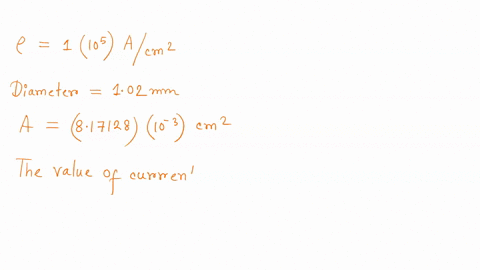 ρ = 1 (10⁵) A/cm2
Diameter = 1.02 mm
A = (8.17128) (10⁻³) cm2
The value of curren'